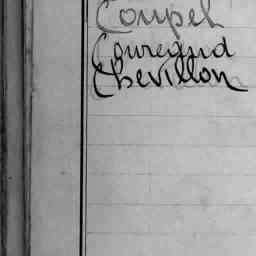 Coupel
Couregnd
Chevillon